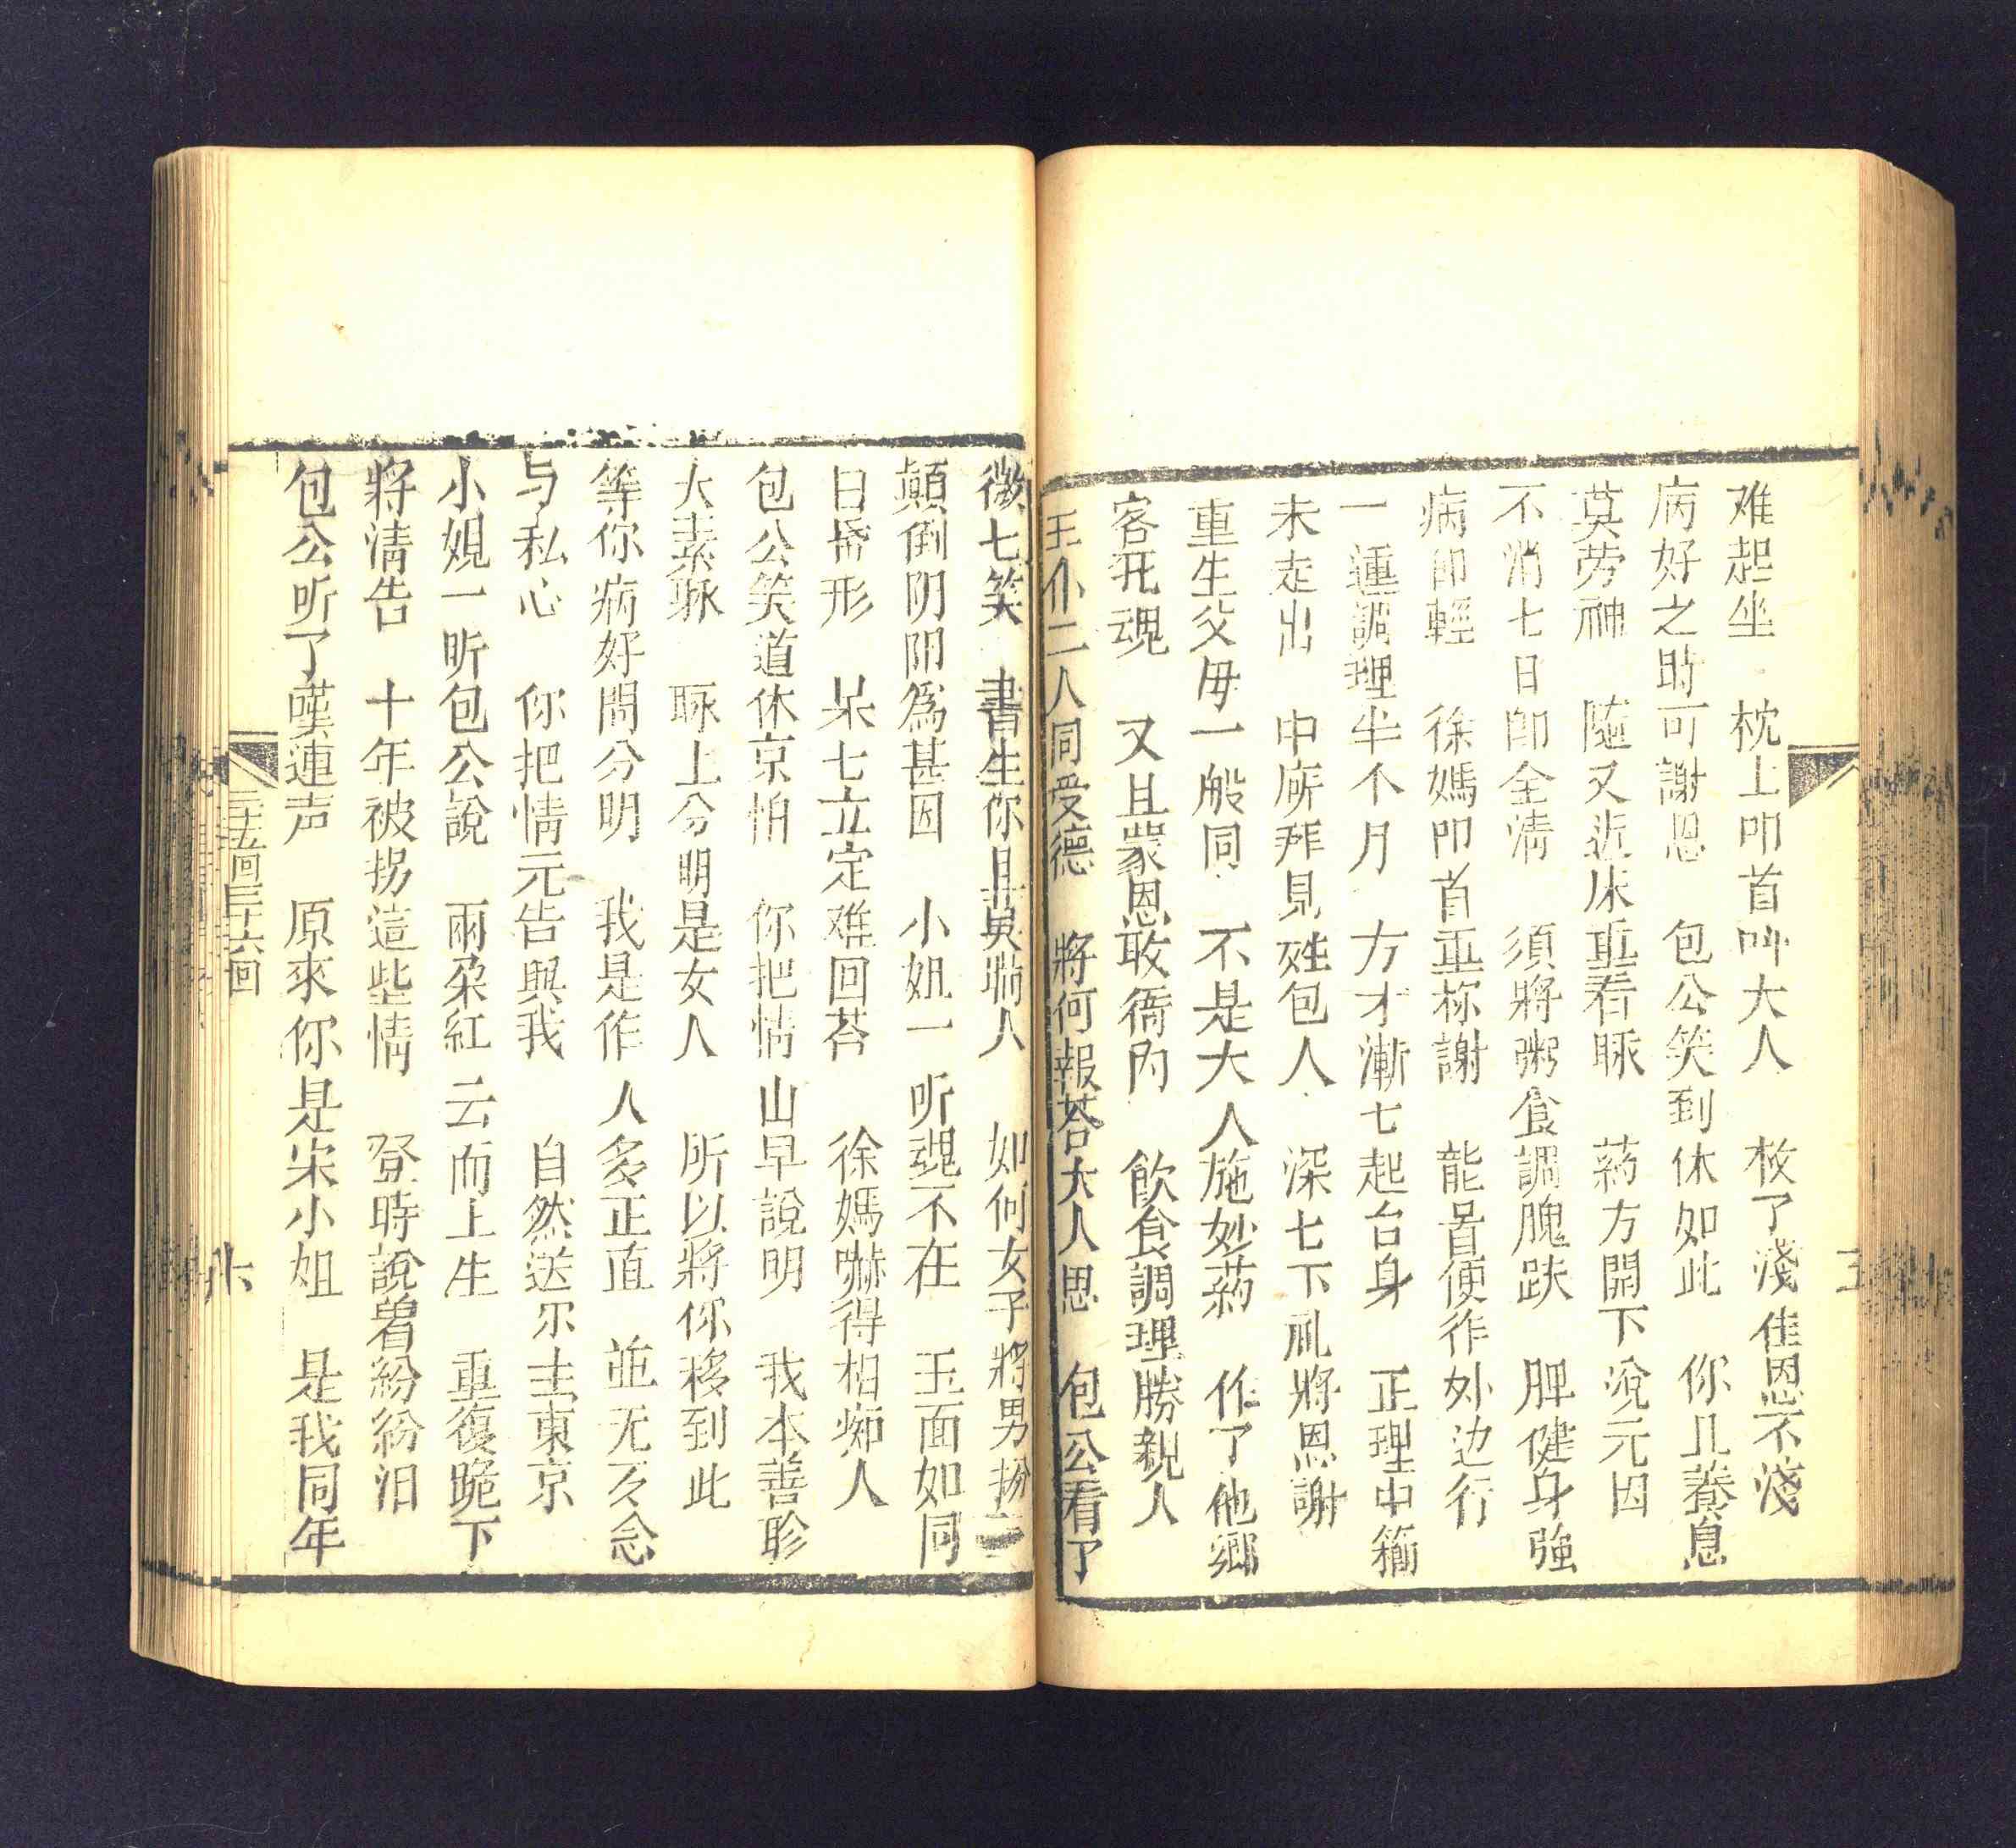 难起坐 枕上叩首叫大人 救了淺佳恩不淺
病好之時可謝恩 包公笑到休如此 你且養息
莫劳神 隨又近床重看脉 药方開下说元因
不消七日即全清 須將粥食調脾 脾健身強
病即輕 徐媽叩首重称謝 能首便作外边行
一連調理半个月 方才漸七起台身 正理中
未走出 中所拜見姓包人 深七下礼將恩謝
重生父母一般同 不是大人施妙药 作了他鄉
客死魂 又且蒙恩收衙內 飲食調理勝親人
王仆二人同受德 將何報荅大人恩 包公看了
微七笑 書生你是異端人 如何女子將男扮
顛倒阴阳為甚因 小姐一听魂不在 玉面如同
日昏形 呆七立定难回荅 徐媽嚇得相痴人
包公笑道休京怕 你把情由早說明 我本善診
太素脉 脉上分明是女人 所以將你移到此
等你病好問分明 我是作人多正直 並无歹念
与私心 你把情元告與我 自然送尔去東京
小姐一听包公說 兩朵紅云而上生 重復跪下
將清告 十年被拐這些情 登時說着紛紛泪
包公听了嘆連声 原來你是宋小姐 是我同年
三十五回三十六回